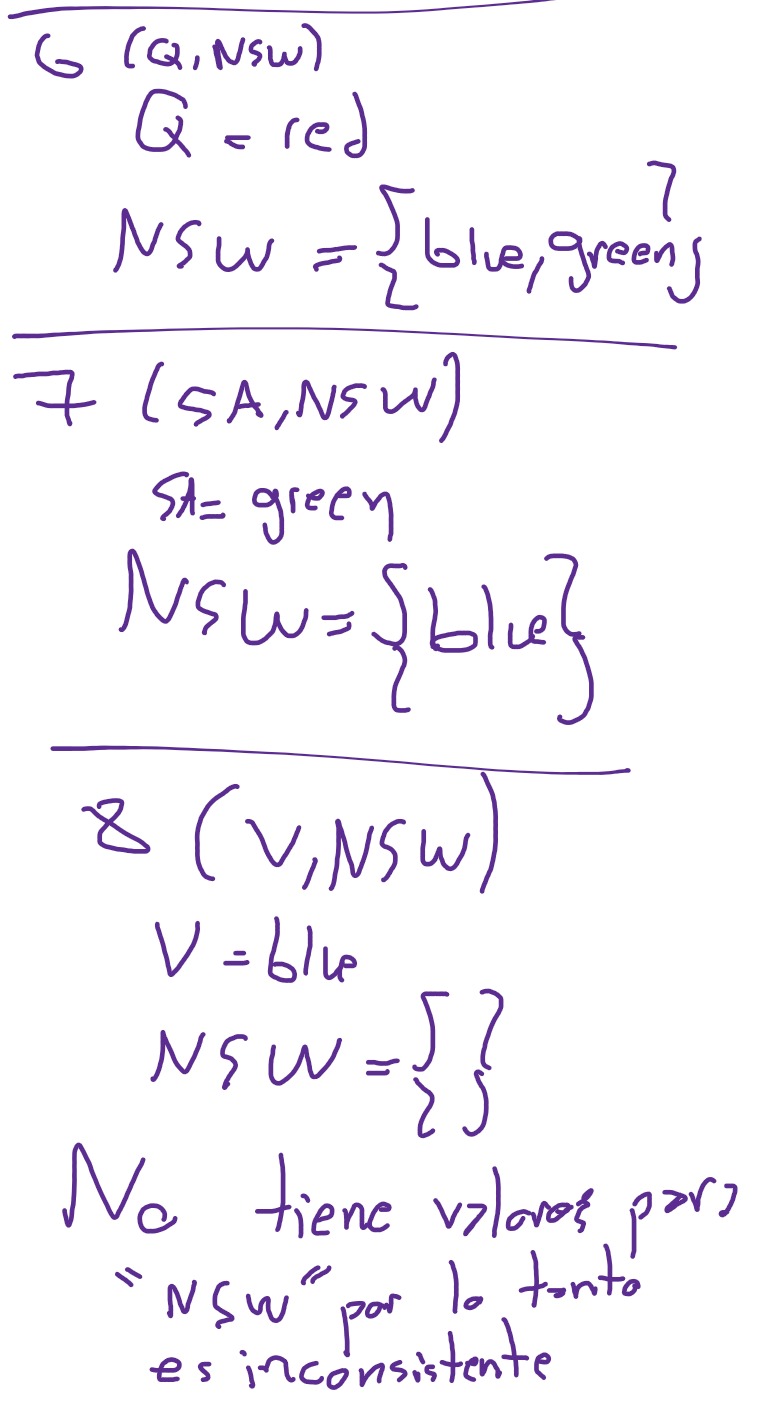 6 (Q, NSW)
Q = red
NSW = {blue, green}
7 (SA, NSW)
SA = green
NSW = {blue}
8 (V, NSW)
V = blue
NSW = { }
No tiene valores para
"NSW" por lo tanto
es inconsistente